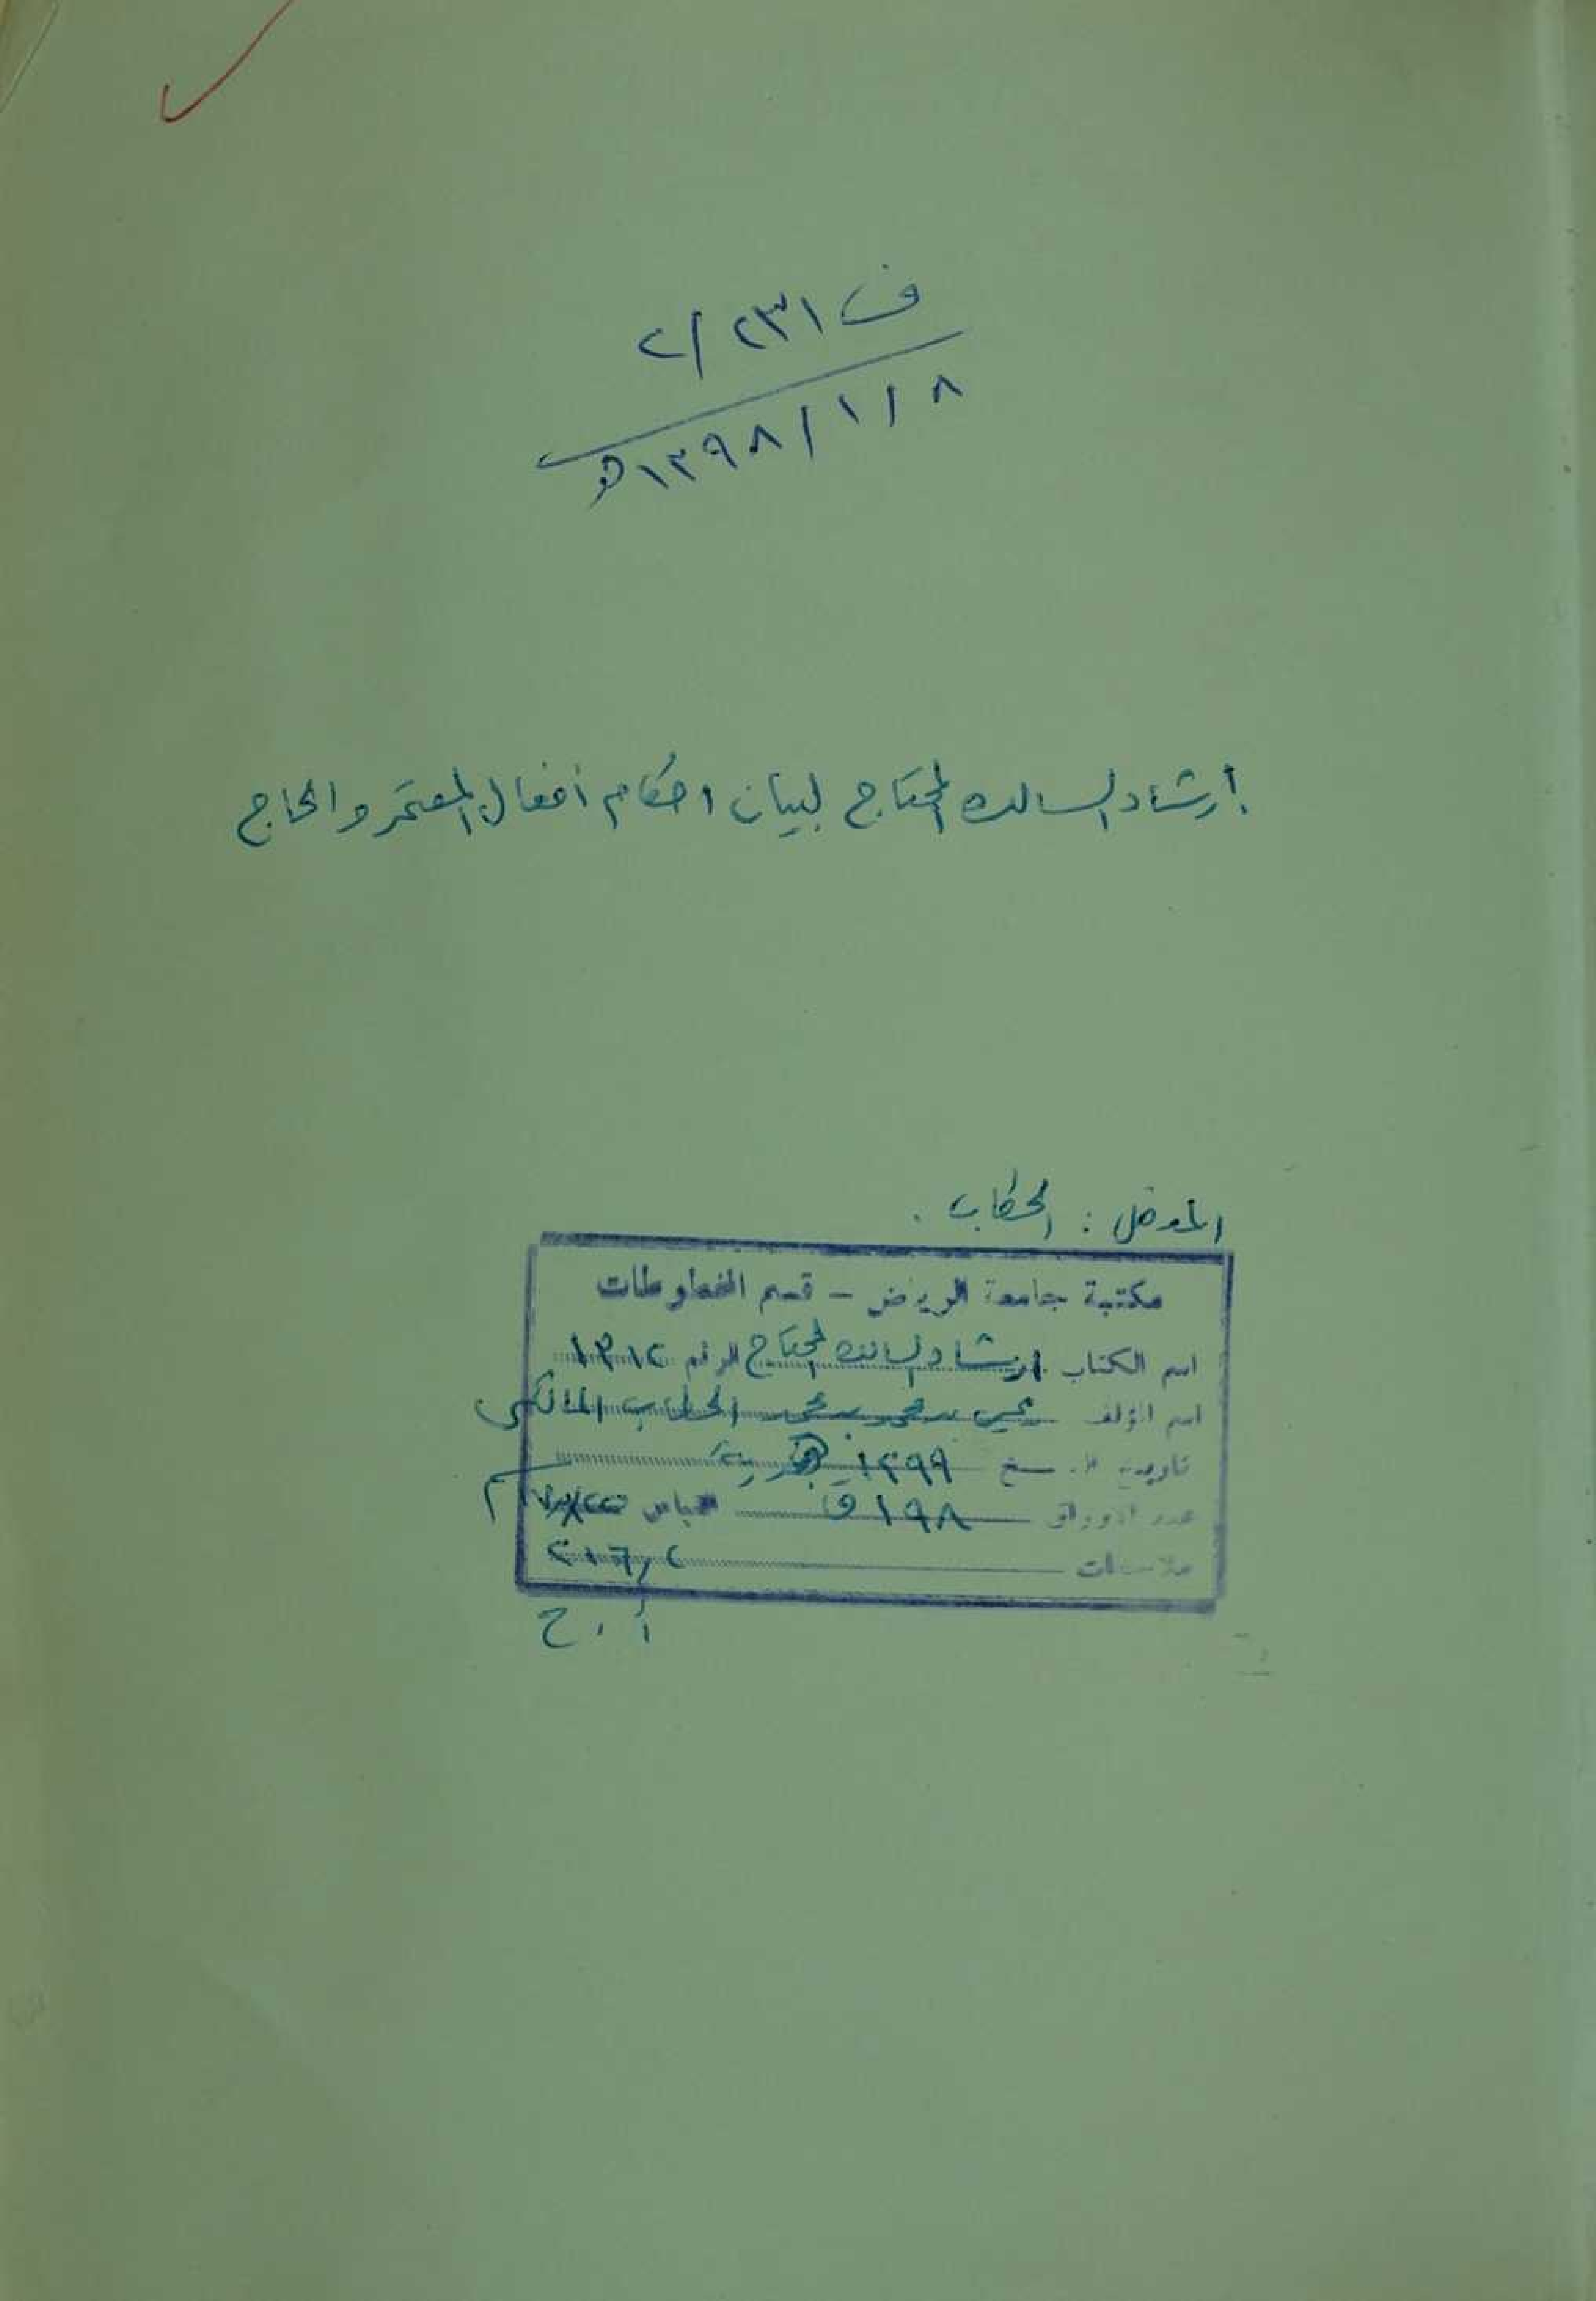 ف ٢٣١ / ٢
٨ / ١ / ١٣٩٨ هـ
إرشاد السالك المحتاج لبيان احكام أفعال المعتمر والحاج
المدخل : الحطاب .
مكتبة جامعة الرياض – قسم المخطوطات
اسم الكتاب ارشاد السالك المحتاج الرقم ١٣١٢
اسم المؤلف يحيى بن محمد بن محمد الحطاب المالكي
تاريخ النسخ ١٢٩٩ هجرية
عدد الاوراق ١٩٨ ق قياس
ملاحظات ٢١٦,٢
أ . ح